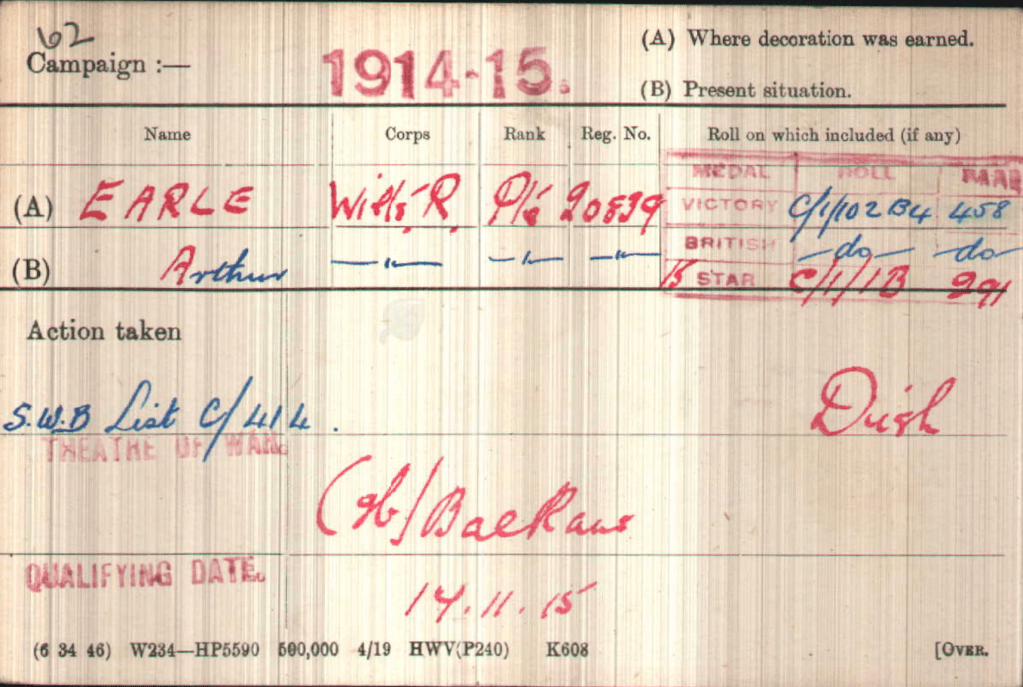 62
Campaign :—
1914-15.
(A) Where decoration was earned.
(B) Present situation.
Name Corps Rank Reg. No. Roll on which included (if any)
MEDAL ROLL PAGE
(A) EARLE Wilts. R. Pte 20839 VICTORY C/1/102 B4 458
(B) Arthur —"— —"— —"— BRITISH —do— —do—
STAR C/1/1B 291
Action taken
S.W.B List C/414.
Disch
THEATRE OF WAR.
Balkans
QUALIFYING DATE.
14.11.15
(6 34 46) W234—HP5590 500,000 4/19 HWV(P240) K608 [OVER.